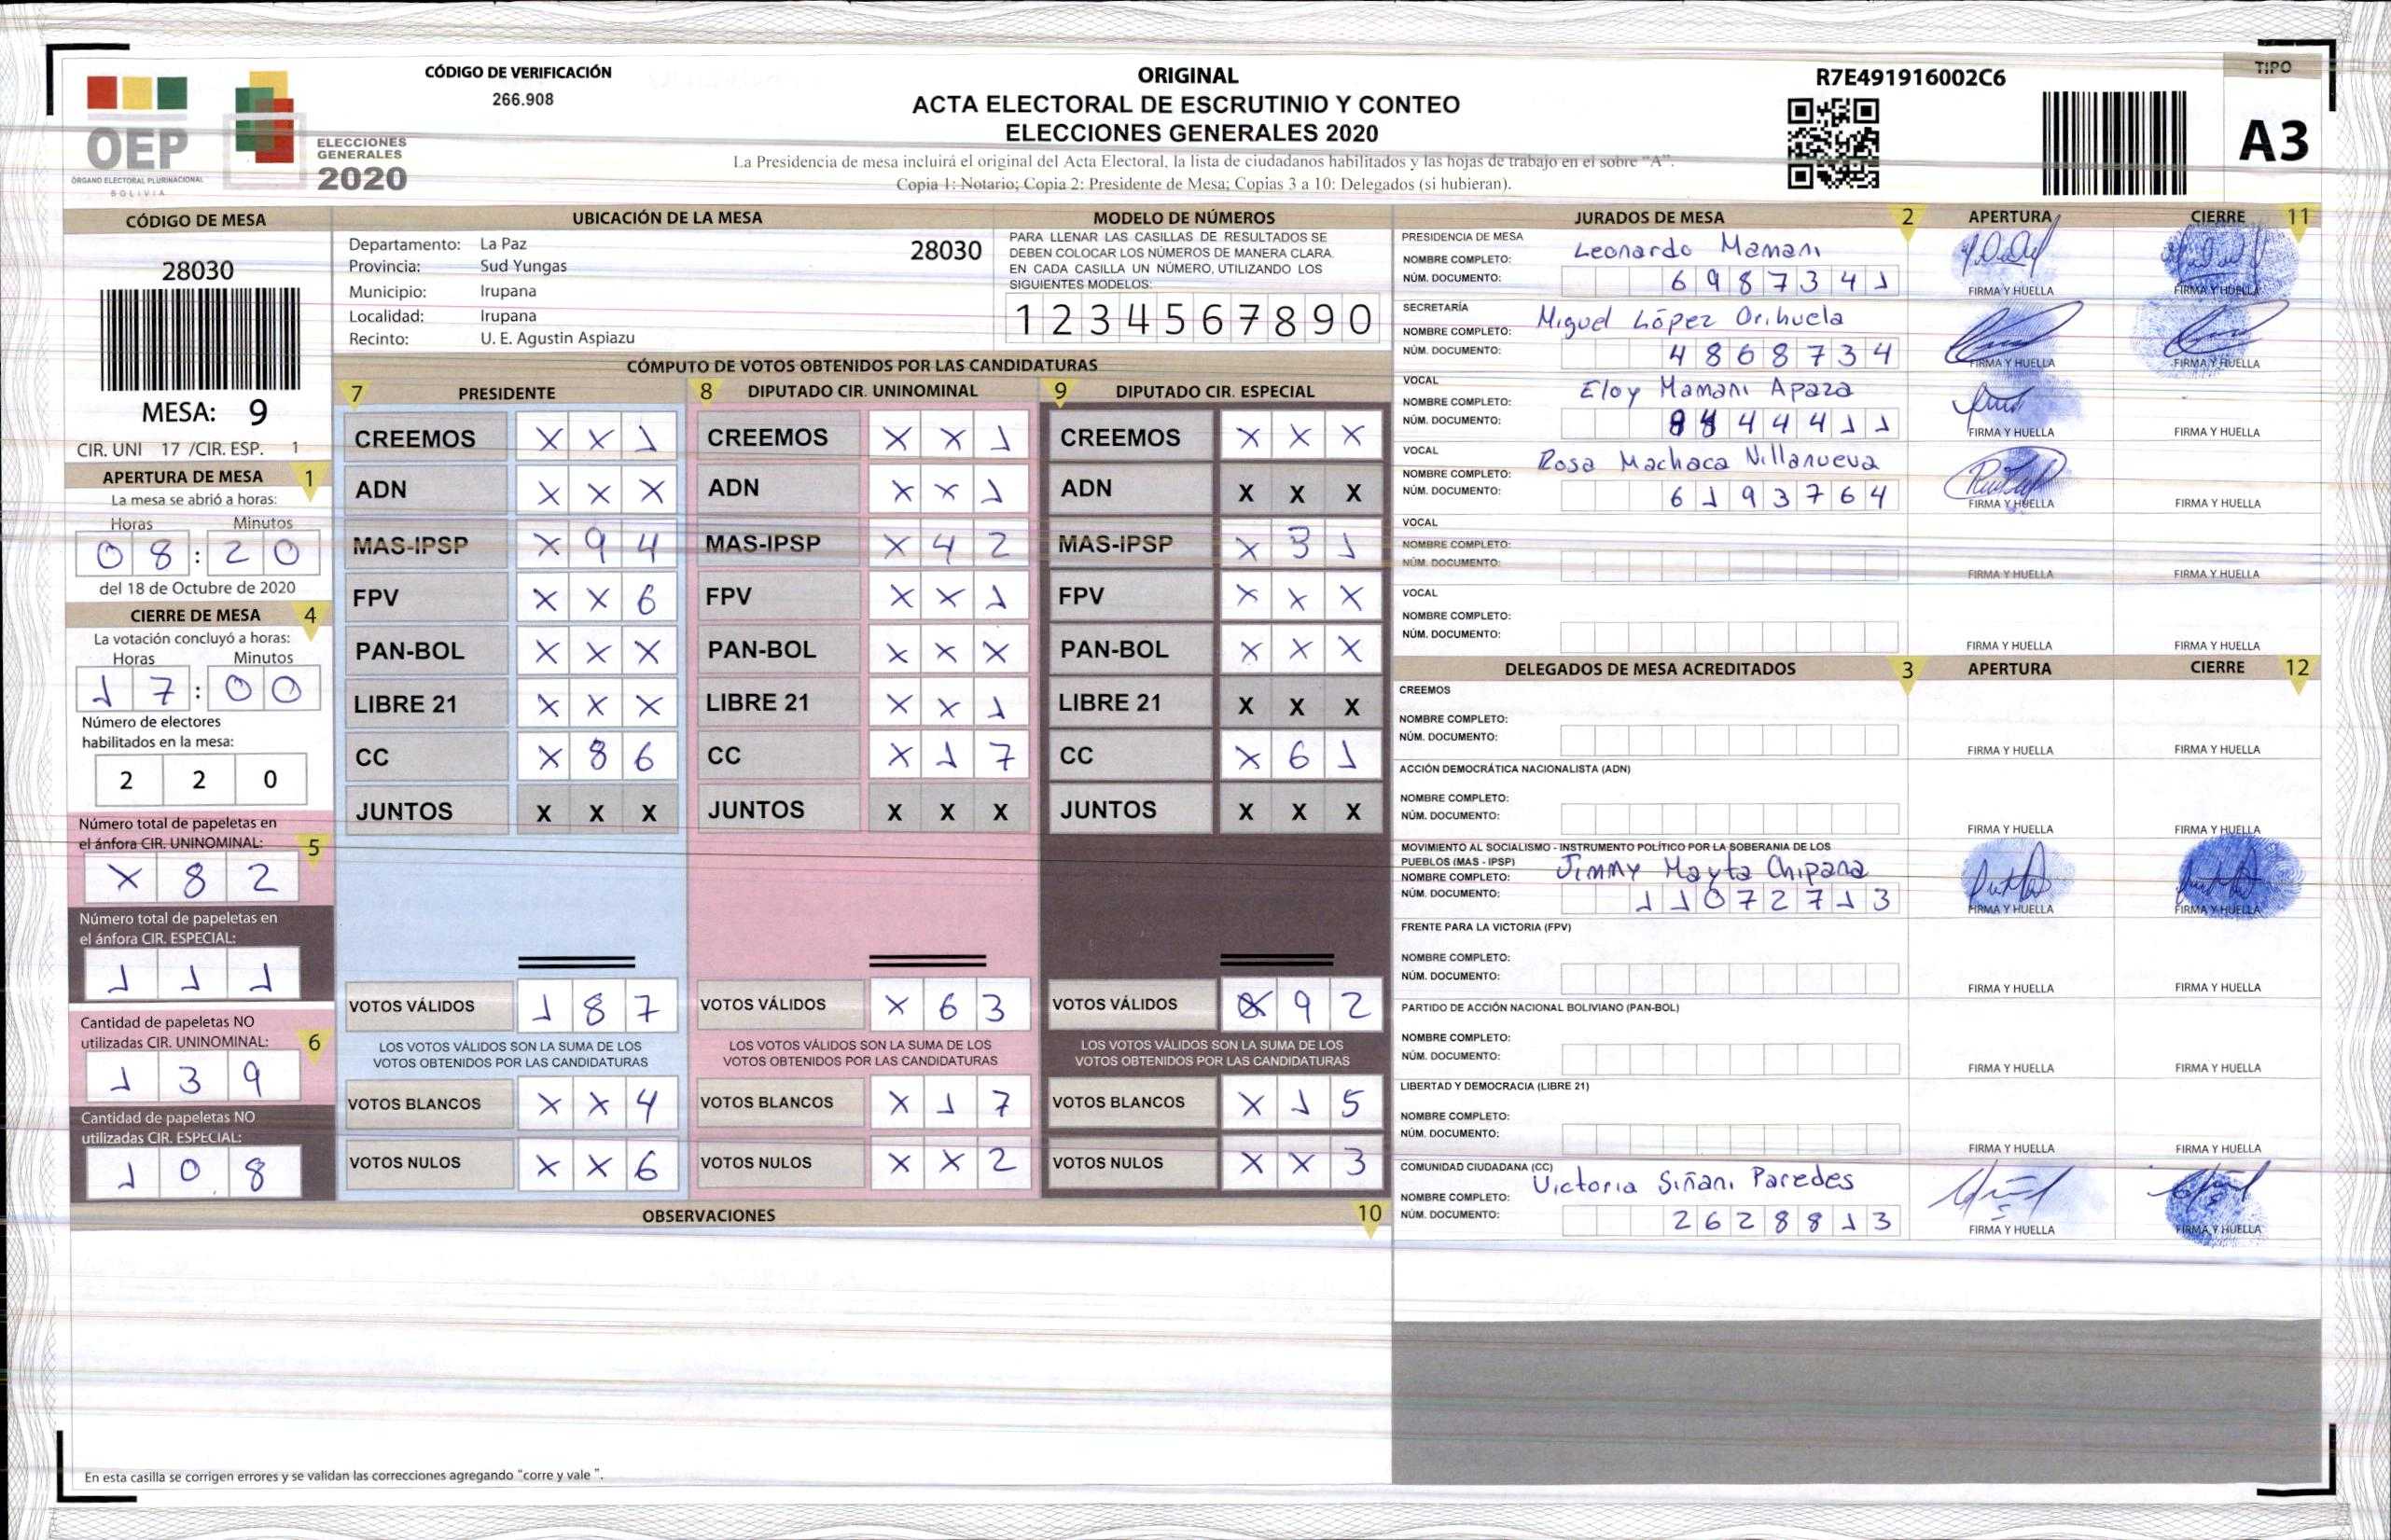 OEP
ÓRGANO ELECTORAL PLURINACIONAL
BOLIVIA
ELECCIONES
GENERALES
2020
CÓDIGO DE VERIFICACIÓN
266.908
ORIGINAL
ACTA ELECTORAL DE ESCRUTINIO Y CONTEO
ELECCIONES GENERALES 2020
La Presidencia de mesa incluirá el original del Acta Electoral, la lista de ciudadanos habilitados y las hojas de trabajo en el sobre "A".
Copia 1: Notario; Copia 2: Presidente de Mesa; Copias 3 a 10: Delegados (si hubieran).
R7E491916002C6
TIPO
A3
CÓDIGO DE MESA
28030
MESA: 9
CIR. UNI 17 /CIR. ESP. 1
APERTURA DE MESA 1
La mesa se abrió a horas:
Horas Minutos
08:20
del 18 de Octubre de 2020
CIERRE DE MESA 4
La votación concluyó a horas:
Horas Minutos
17:00
Número de electores
habilitados en la mesa:
2 2 0
Número total de papeletas en
el ánfora CIR. UNINOMINAL: 5
X 8 2
Número total de papeletas en
el ánfora CIR. ESPECIAL:
1 1 1
Cantidad de papeletas NO
utilizadas CIR. UNINOMINAL: 6
1 3 9
Cantidad de papeletas NO
utilizadas CIR. ESPECIAL:
1 0 8
UBICACIÓN DE LA MESA
Departamento: La Paz 28030
Provincia: Sud Yungas
Municipio: Irupana
Localidad: Irupana
Recinto: U. E. Agustin Aspiazu
MODELO DE NÚMEROS
PARA LLENAR LAS CASILLAS DE RESULTADOS SE
DEBEN COLOCAR LOS NÚMEROS DE MANERA CLARA.
EN CADA CASILLA UN NÚMERO, UTILIZANDO LOS
SIGUIENTES MODELOS:
1 2 3 4 5 6 7 8 9 0
CÓMPUTO DE VOTOS OBTENIDOS POR LAS CANDIDATURAS
7 PRESIDENTE
CREEMOS X X 1
ADN X X X
MAS-IPSP X 9 4
FPV X X 6
PAN-BOL X X X
LIBRE 21 X X X
CC X 8 6
JUNTOS X X X
VOTOS VÁLIDOS 1 8 7
LOS VOTOS VÁLIDOS SON LA SUMA DE LOS
VOTOS OBTENIDOS POR LAS CANDIDATURAS
VOTOS BLANCOS X X 4
VOTOS NULOS X X 6
8 DIPUTADO CIR. UNINOMINAL
CREEMOS X X 1
ADN X X 1
MAS-IPSP X 4 2
FPV X X 1
PAN-BOL X X X
LIBRE 21 X X 1
CC X 1 7
JUNTOS X X X
VOTOS VÁLIDOS X 6 3
LOS VOTOS VÁLIDOS SON LA SUMA DE LOS
VOTOS OBTENIDOS POR LAS CANDIDATURAS
VOTOS BLANCOS X 1 7
VOTOS NULOS X X 2
9 DIPUTADO CIR. ESPECIAL
CREEMOS X X X
ADN X X X
MAS-IPSP X 3 1
FPV X X X
PAN-BOL X X X
LIBRE 21 X X X
CC X 6 1
JUNTOS X X X
VOTOS VÁLIDOS X 9 2
LOS VOTOS VÁLIDOS SON LA SUMA DE LOS
VOTOS OBTENIDOS POR LAS CANDIDATURAS
VOTOS BLANCOS X 1 5
VOTOS NULOS X X 3
OBSERVACIONES 10
En esta casilla se corrigen errores y se validan las correcciones agregando "corre y vale ".
JURADOS DE MESA 2 APERTURA CIERRE 11
PRESIDENCIA DE MESA
NOMBRE COMPLETO: Leonardo Mamani
NÚM. DOCUMENTO: 6987341
FIRMA Y HUELLA FIRMA Y HUELLA
SECRETARÍA
NOMBRE COMPLETO: Miguel López Orihuela
NÚM. DOCUMENTO: 4868734
FIRMA Y HUELLA FIRMA Y HUELLA
VOCAL
NOMBRE COMPLETO: Eloy Mamani Apaza
NÚM. DOCUMENTO: 44411
FIRMA Y HUELLA FIRMA Y HUELLA
VOCAL
NOMBRE COMPLETO: Rosa Machaca Villanueva
NÚM. DOCUMENTO: 6193764
FIRMA Y HUELLA FIRMA Y HUELLA
VOCAL
NOMBRE COMPLETO:
NÚM. DOCUMENTO:
FIRMA Y HUELLA FIRMA Y HUELLA
VOCAL
NOMBRE COMPLETO:
NÚM. DOCUMENTO:
FIRMA Y HUELLA FIRMA Y HUELLA
DELEGADOS DE MESA ACREDITADOS 3 APERTURA CIERRE 12
CREEMOS
NOMBRE COMPLETO:
NÚM. DOCUMENTO:
FIRMA Y HUELLA FIRMA Y HUELLA
ACCIÓN DEMOCRÁTICA NACIONALISTA (ADN)
NOMBRE COMPLETO:
NÚM. DOCUMENTO:
FIRMA Y HUELLA FIRMA Y HUELLA
MOVIMIENTO AL SOCIALISMO - INSTRUMENTO POLÍTICO POR LA SOBERANIA DE LOS
PUEBLOS (MAS - IPSP)
NOMBRE COMPLETO: Jimmy Mayta Chipana
NÚM. DOCUMENTO: 11072713
FIRMA Y HUELLA FIRMA Y HUELLA
FRENTE PARA LA VICTORIA (FPV)
NOMBRE COMPLETO:
NÚM. DOCUMENTO:
FIRMA Y HUELLA FIRMA Y HUELLA
PARTIDO DE ACCIÓN NACIONAL BOLIVIANO (PAN-BOL)
NOMBRE COMPLETO:
NÚM. DOCUMENTO:
FIRMA Y HUELLA FIRMA Y HUELLA
LIBERTAD Y DEMOCRACIA (LIBRE 21)
NOMBRE COMPLETO:
NÚM. DOCUMENTO:
FIRMA Y HUELLA FIRMA Y HUELLA
COMUNIDAD CIUDADANA (CC)
NOMBRE COMPLETO: Victoria Siñani Paredes
NÚM. DOCUMENTO: 2628813
FIRMA Y HUELLA FIRMA Y HUELLA